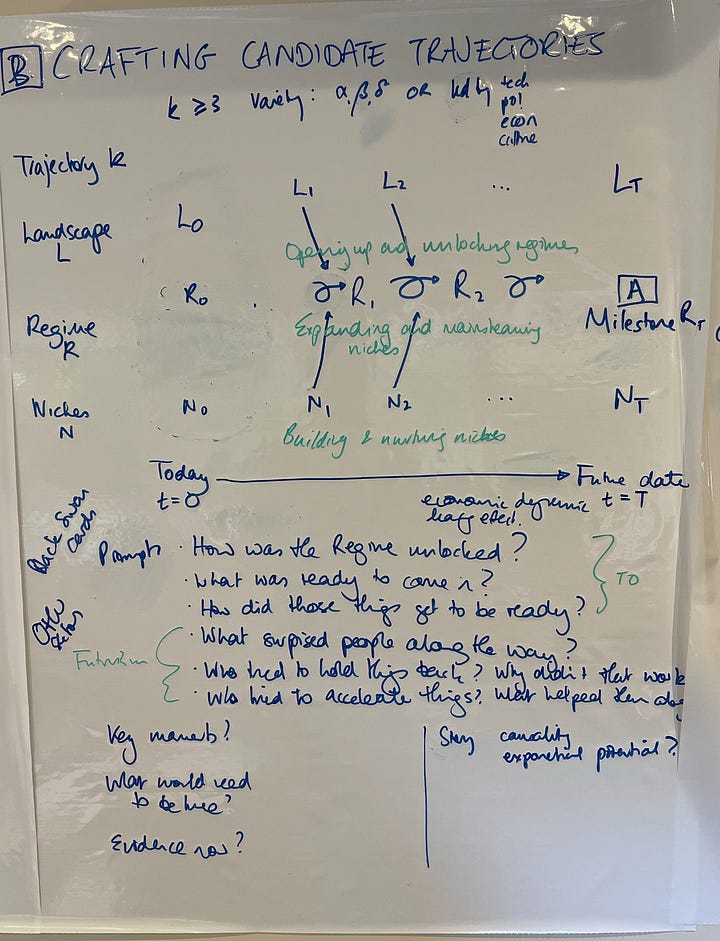 B CRAFTING CANDIDATE TRAJECTORIES
k ⩾ 3 Variety: α, β, δ OR led by tech
pol
econ
culture
Trajectory k
L₁ L₂ ... L_T
Landscape
L
L₀
Opening up and unlocking regimes
R₀ R₁ R₂ A
Regime
R
Milestone R_T
Expanding and mainstreaming
niches
Niches
N
N₀ N₁ N₂ ... N_T
Building & nurturing niches
Today Future date
t=0 t=T
economic dynamic
effect.
Black Swan
cards
Prompts · How was the Regime unlocked?
· What was ready to come in?
· How did those things get to be ready?
TO
Other
· What surprised people along the way?
Futurism
· Who tried to hold things back? Why didn't that work
· Who tried to accelerate things? What helped them along
Key moments?
What would need
to be true?
Evidence now?
Story causality
exponential potential?